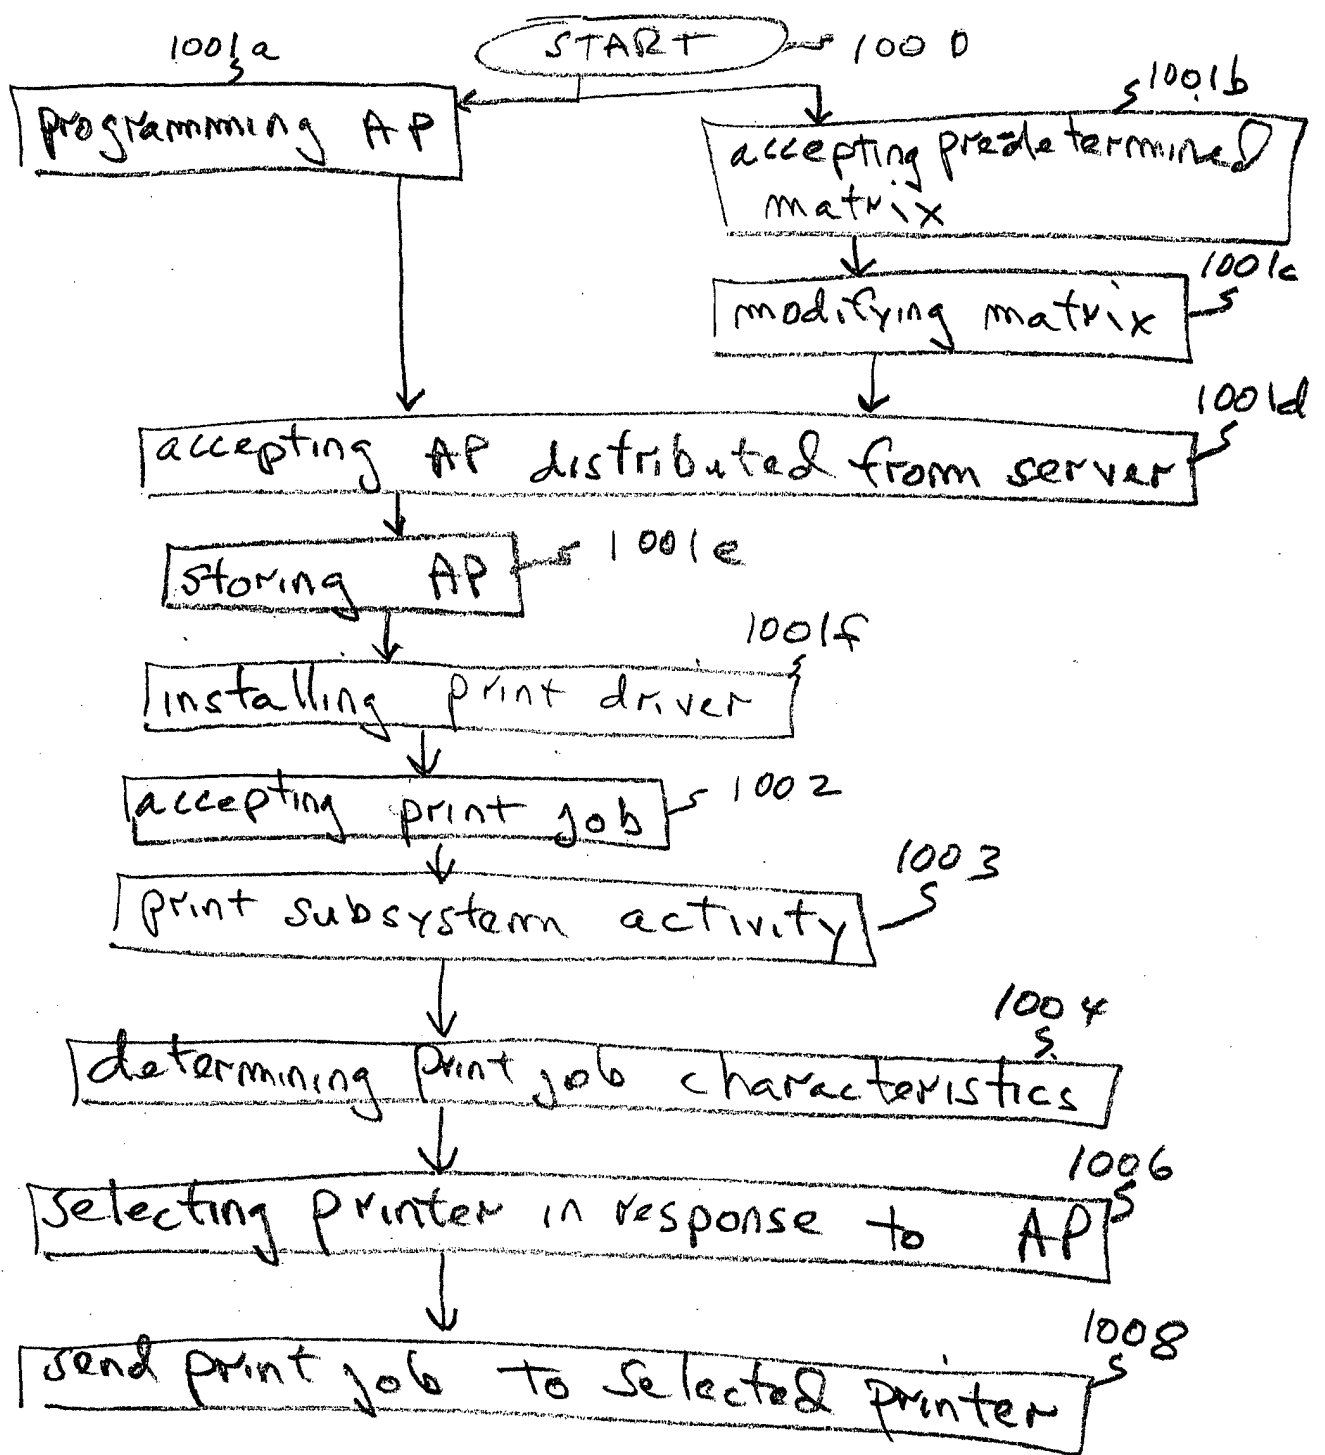 1001a
START
1000
programming AP
1001b
accepting predetermined
matrix
1001c
modifying matrix
1001d
accepting AP distributed from server
storing AP
1001e
1001f
installing print driver
accepting print job
1002
1003
print subsystem activity
1004
determining print job characteristics
1006
selecting printer in response to AP
1008
send print job to selected printer